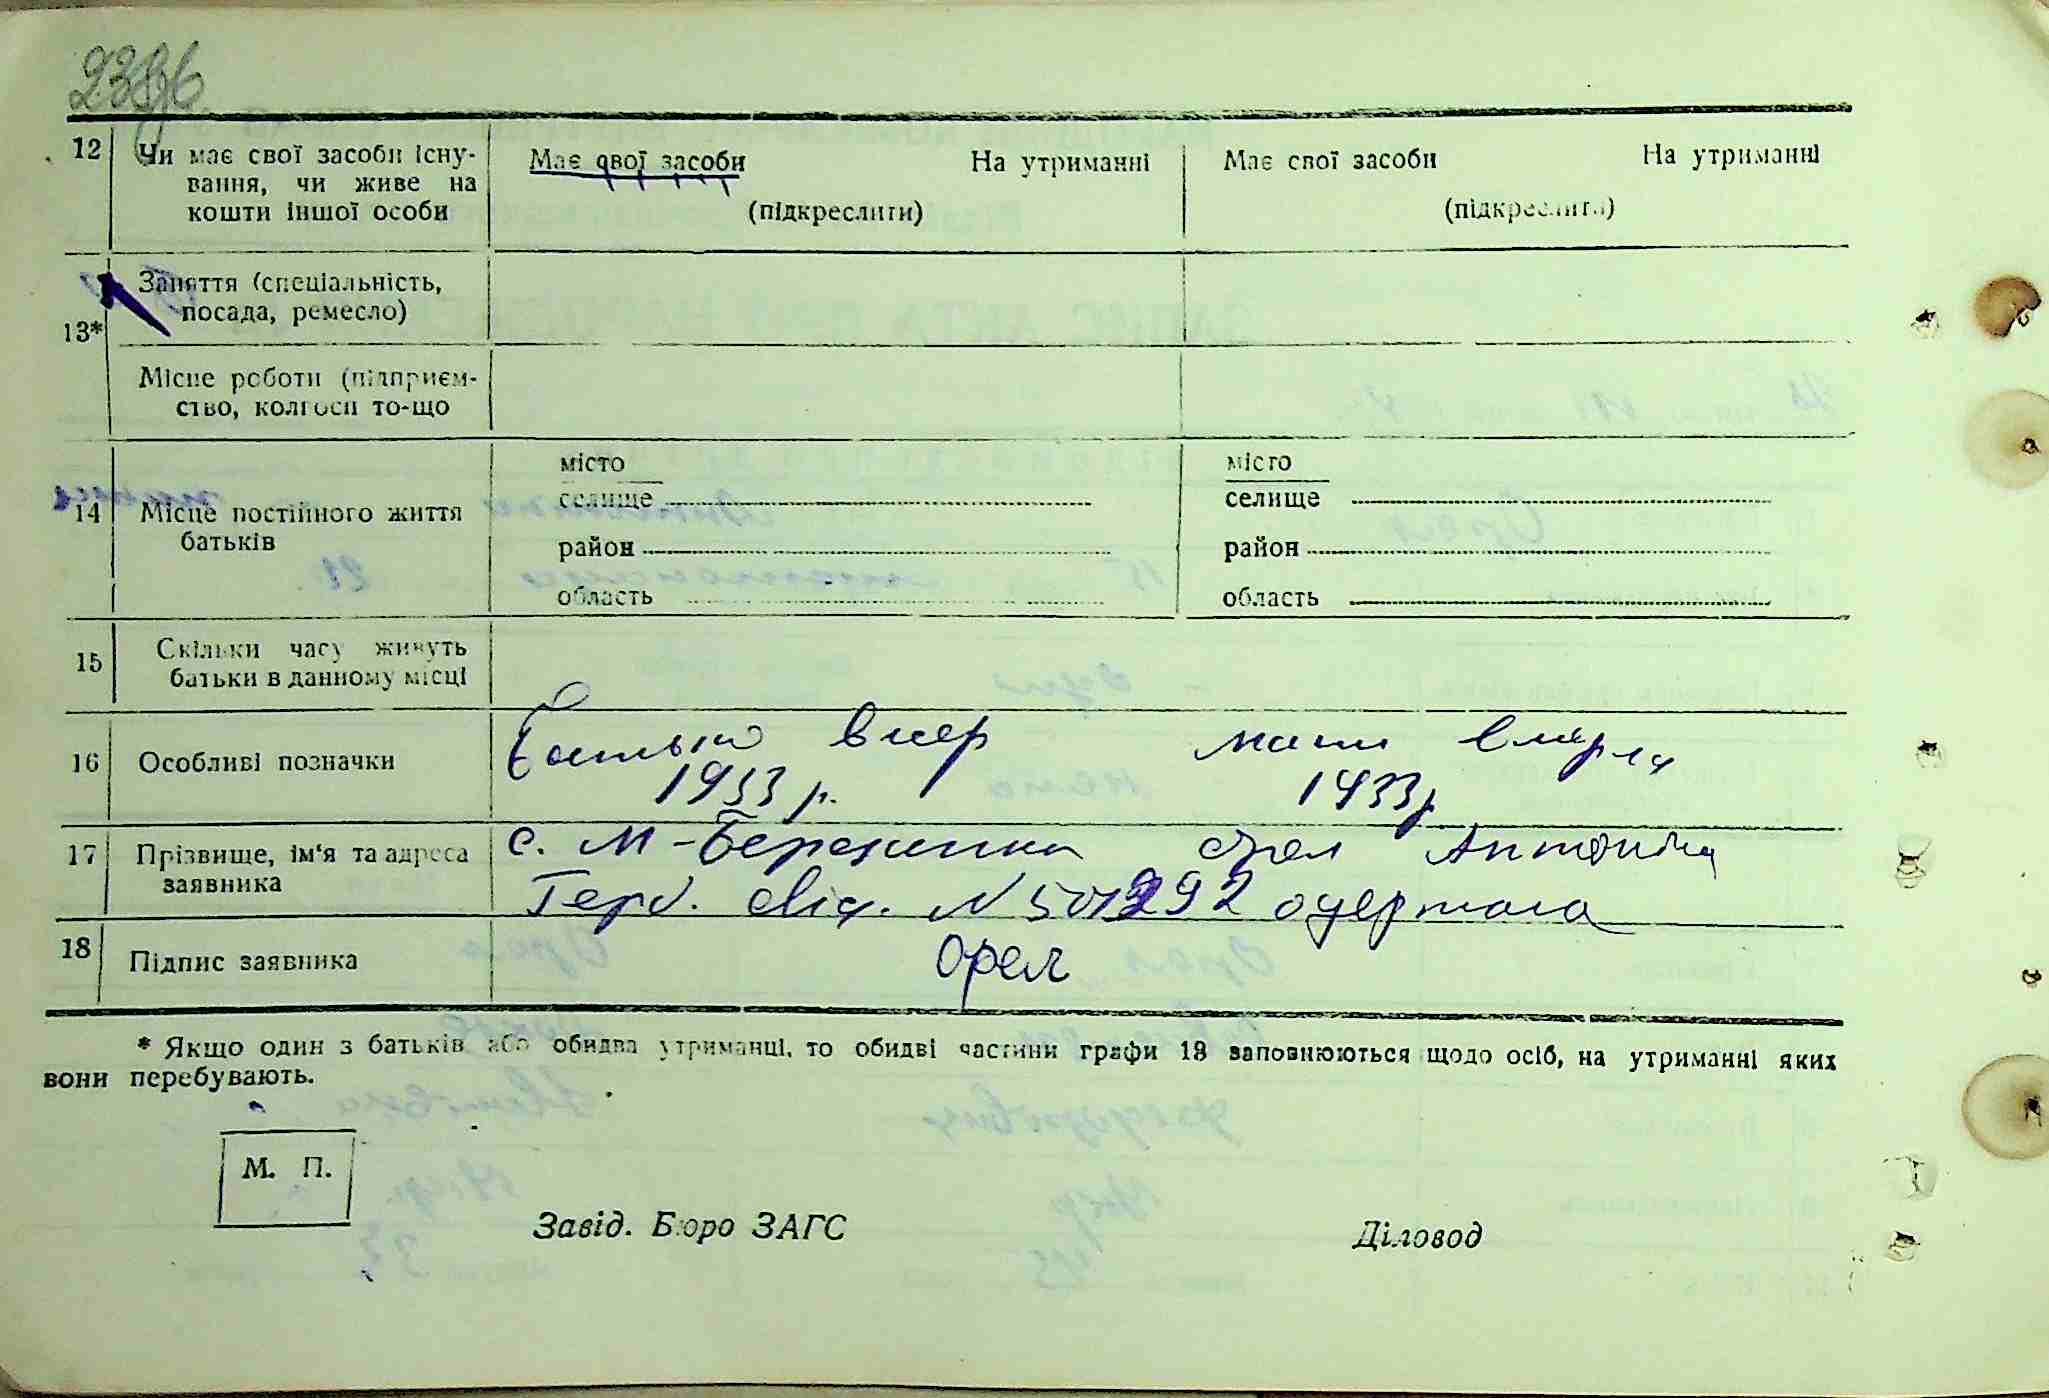 12 Чи має свої засоби існу- Має свої засоби На утриманні Має свої засоби На утриманні
вання, чи живе на
кошти іншої особи (підкреслити) (підкреслити)
Заняття (спеціальність,
посада, ремесло)
13*
Місце роботи (підприєм-
ство, колгосп то-що
місто місто
14 Місце постійного життя селище селище
батьків район район
область область
15 Скільки часу живуть
батьки в данному місці
16 Особливі позначки Батько вмер мати вмерла
1933 р. 1933 р
17 Прізвище, ім'я та адреса с. М-Березанка Орел Антоніна
заявника Герб. свід. N одержала
18 Підпис заявника Орел
* Якщо один з батьків або обидва утриманці, то обидві частини графи 13 заповнюються щодо осіб, на утриманні яких
вони перебувають.
М. П.
Завід. Бюро ЗАГС Діловод